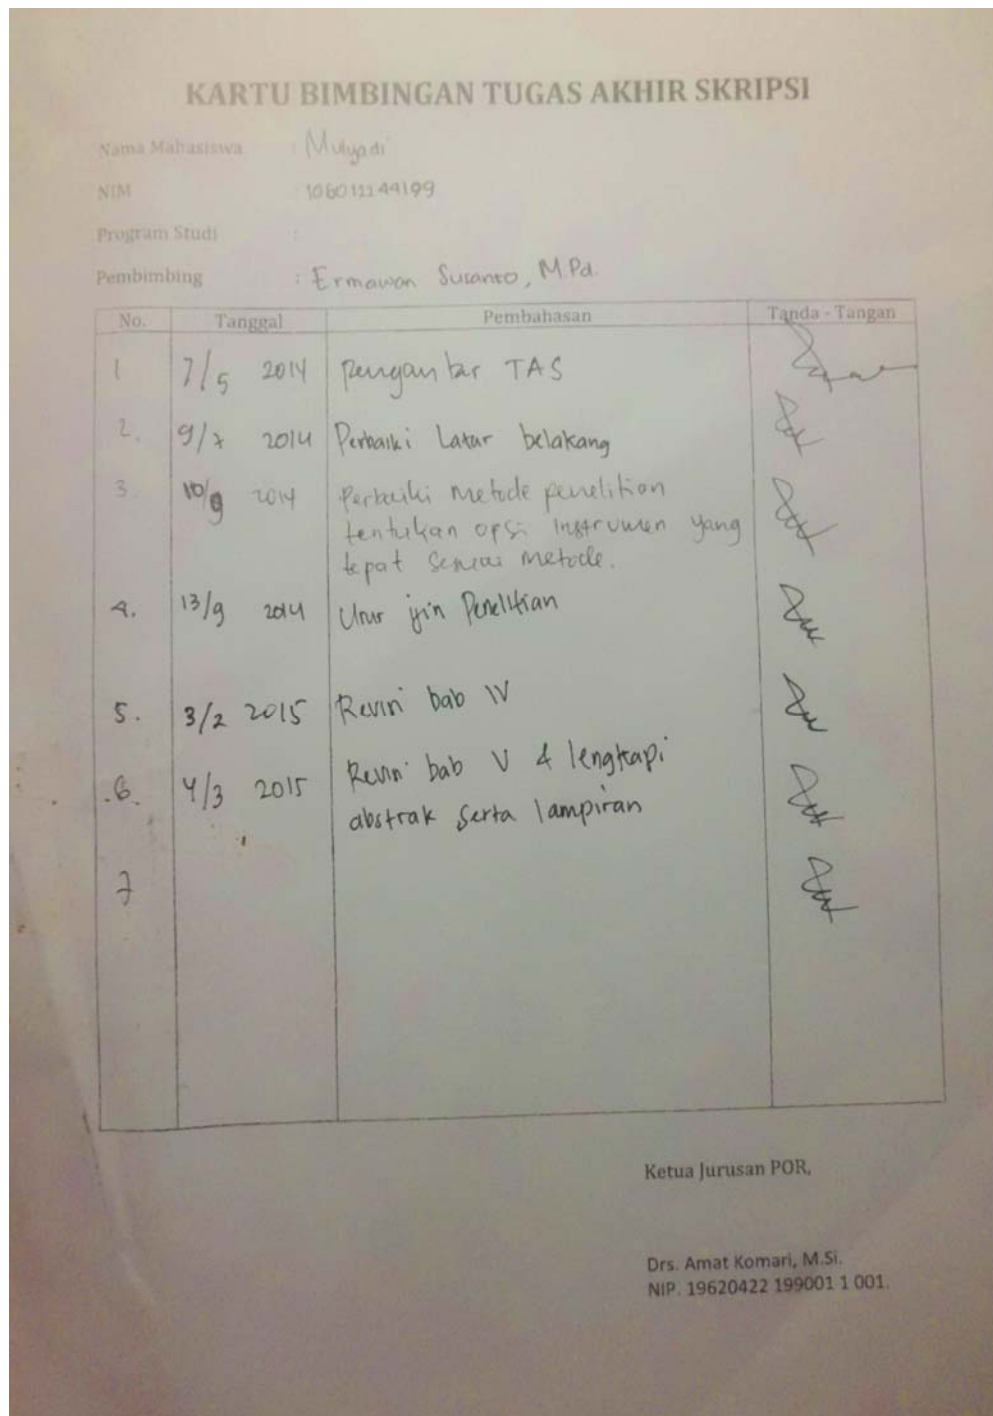 KARTU BIMBINGAN TUGAS AKHIR SKRIPSI
Nama Mahasiswa : Mulyadi
NIM : 10601244199
Program Studi :
Pembimbing : Ermawan Susanto, M.Pd.
No. Tanggal Pembahasan Tanda - Tangan
1 7/5 2014 Pengantar TAS
2. 9/7 2014 Perbaiki Latar belakang
3. 10/9 2014 Perbaiki metode penelitian
tentukan opsi instrumen yang
tepat sesuai metode.
4. 13/9 2014 Urus ijin Penelitian
5. 3/2 2015 Revisi bab IV
6. 4/3 2015 Revisi bab V & lengkapi
abstrak serta lampiran
7
Ketua Jurusan POR,
Drs. Amat Komari, M.Si.
NIP. 19620422 199001 1 001.